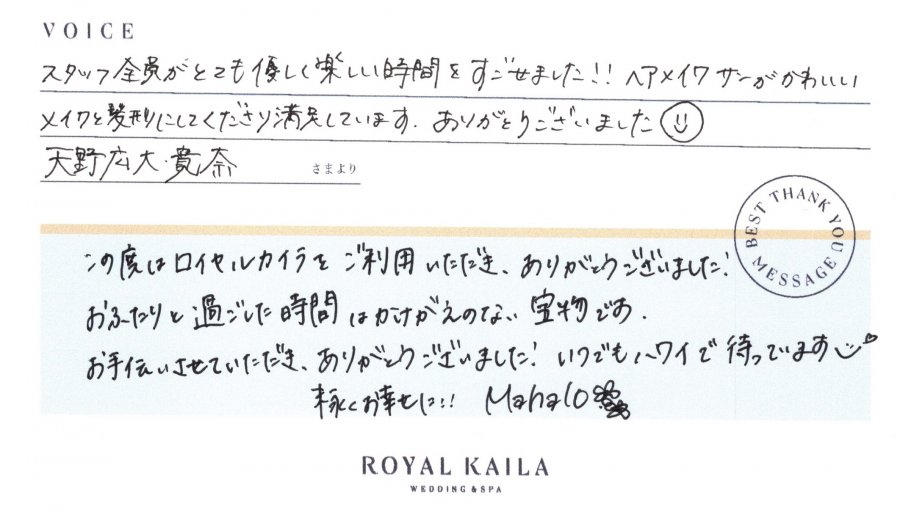 VOICE
スタッフ全員がとても優しく楽しい時間をすごせました!! ヘアメイクサンがかわいい
メイクと髪形にしてくださり満足しています. ありがとうございました
天野広大・貴奈 さまより
BEST THANK YOU MESSAGE
この度はロイヤルカイラをご利用いただき、ありがとうございました!
おふたりと過ごした時間はかけがえのない宝物です.
お手伝いさせていただき、ありがとうございました! いつでもハワイで待っています
末永くお幸せに!! Mahalo
ROYAL KAILA
WEDDING & SPA